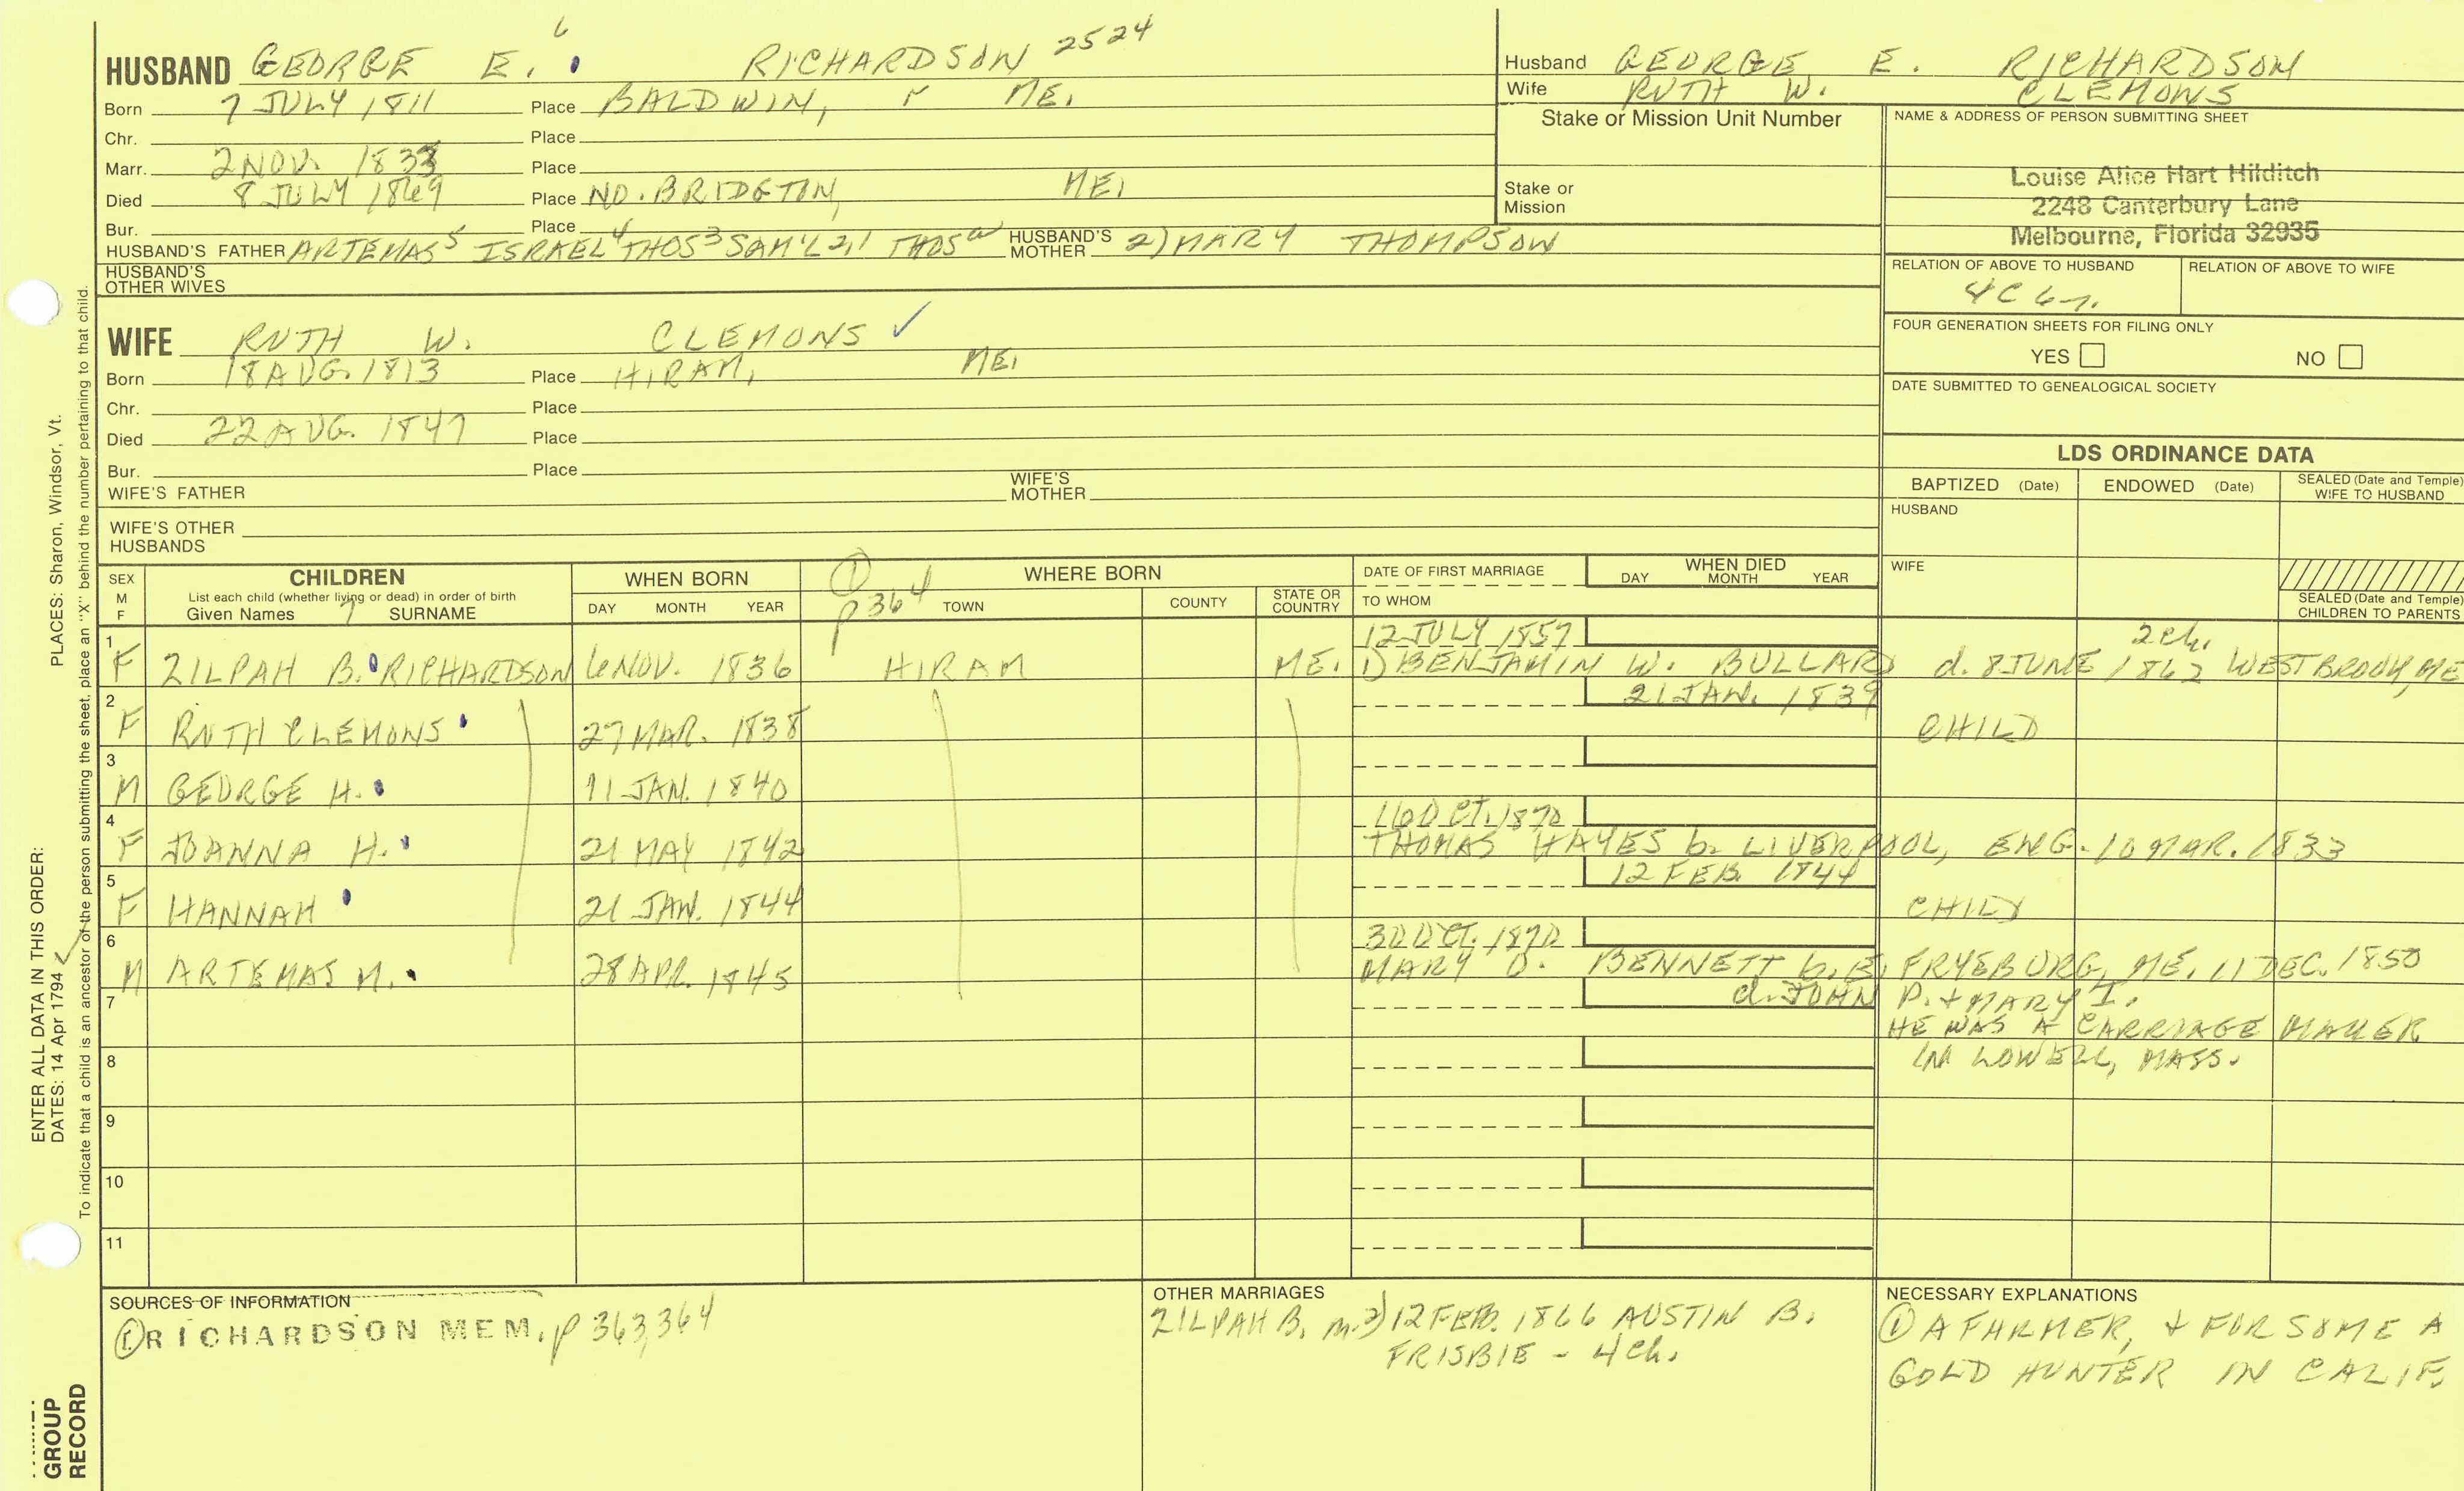 HUSBAND GEORGE E. 6 RICHARDSON 2524
Born 7 JULY 1811 Place BALDWIN, ME.
Chr. Place
Marr. 2 NOV. 1833 Place
Died 8 JULY 1869 Place NO. BRIDGTON, ME.
Bur. Place
HUSBAND'S FATHER ARTEMAS5 ISRAEL4 THOS3 SAM'L2,1 THOSa HUSBAND'S MOTHER 2) MARY THOMPSON
HUSBAND'S OTHER WIVES
WIFE RUTH W. CLEMONS ✓
Born 18 AUG. 1813 Place HIRAM, ME.
Chr. Place
Died 22 AUG. 1847 Place
Bur. Place
WIFE'S FATHER WIFE'S MOTHER
WIFE'S OTHER HUSBANDS
Husband GEORGE E. RICHARDSON
Wife RUTH W. CLEMONS
Stake or Mission Unit Number
Stake or Mission
NAME & ADDRESS OF PERSON SUBMITTING SHEET
Louise Alice Hart Hilditch
2248 Canterbury Lane
Melbourne, Florida 32935
RELATION OF ABOVE TO HUSBAND RELATION OF ABOVE TO WIFE
FOUR GENERATION SHEETS FOR FILING ONLY
YES NO
DATE SUBMITTED TO GENEALOGICAL SOCIETY
LDS ORDINANCE DATA
BAPTIZED (Date) ENDOWED (Date) SEALED (Date and Temple) WIFE TO HUSBAND
HUSBAND
WIFE
SEALED (Date and Temple) CHILDREN TO PARENTS
SEX M F
CHILDREN
List each child (whether living or dead) in order of birth
Given Names 7 SURNAME
WHEN BORN
DAY MONTH YEAR
① p 364
WHERE BORN
TOWN COUNTY STATE OR COUNTRY
DATE OF FIRST MARRIAGE
TO WHOM
WHEN DIED
DAY MONTH YEAR
12 JULY 1857 2 ch.
1 F ZILPAH B. RICHARDSON 6 NOV. 1836 HIRAM ME. 1) BENJAMIN W. BULLARD d. 8 JUNE 1862 WESTBROOK, ME
21 JAN. 1839
2 F RUTH CLEMONS 27 MAR. 1838 CHILD
3 M GEORGE H. 11 JAN. 1840
16 OCT. 1870
4 F JOANNA H. 21 MAY 1842 THOMAS HAYES b. LIVERPOOL, ENG. 10 MAR. 1833
12 FEB. 1844
5 F HANNAH 21 JAN. 1844 CHILD
30 OCT. 1870
6 M ARTEMAS M. 28 APR. 1845 MARY O. BENNETT b. E. FRYEBURG, ME. 11 DEC. 1850
7 d. JOHN P. + MARY I.
HE WAS A CARRIAGE MAKER
8 IN LOWELL, MASS.
9
10
11
SOURCES OF INFORMATION
① RICHARDSON MEM. p 363,364
OTHER MARRIAGES
ZILPAH B. m. 2) 12 FEB. 1866 AUSTIN B.
FRISBIE - 4 ch.
NECESSARY EXPLANATIONS
① A FARMER, + FOR SOME A
GOLD HUNTER IN CALIF.
ENTER ALL DATA IN THIS ORDER: PLACES: Sharon, Windsor, Vt.
DATES: 14 Apr 1794 ✓
To indicate that a child is an ancestor of the person submitting the sheet, place an "X" behind the number pertaining to that child.
GROUP
RECORD